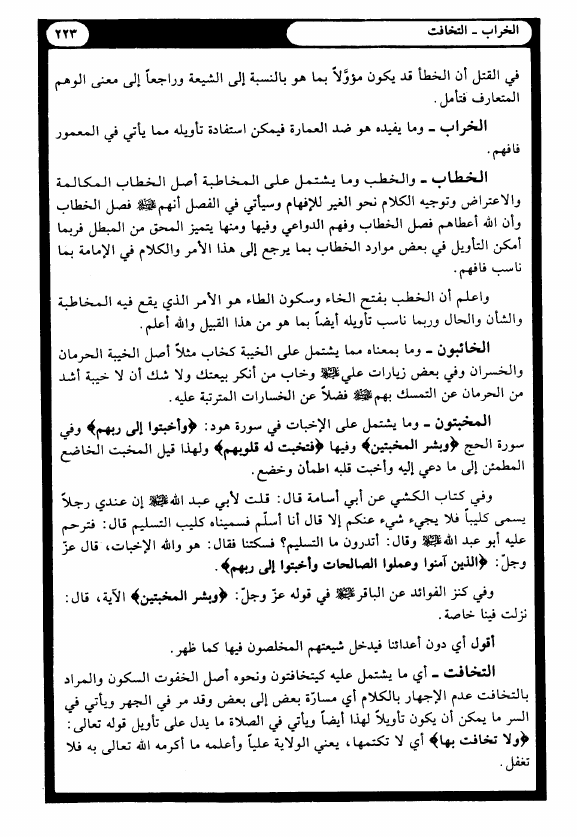 الخراب ـ التخافت
٢٢٣
في القتل أن الخطأ قد يكون مؤوَّلاً بما هو بالنسبة إلى الشيعة وراجعاً إلى معنى الوهم
المتعارف فتأمل.
الخراب ـ وما يفيده هو ضد العمارة فيمكن استفادة تأويله مما يأتي في المعمور
فافهم.
الخطاب ـ والخطب وما يشتمل على المخاطبة أصل الخطاب المكالمة
والاعتراض وتوجيه الكلام نحو الغير للإفهام وسيأتي في الفصل أنهم ﷺ فصل الخطاب
وأن الله أعطاهم فصل الخطاب وفهم الدواعي وفيها ومنها يتميز المحق من المبطل فربما
أمكن التأويل في بعض موارد الخطاب بما يرجع إلى هذا الأمر والكلام في الإمامة بما
ناسب فافهم.
واعلم أن الخطب بفتح الخاء وسكون الطاء هو الأمر الذي يقع فيه المخاطبة
والشأن والحال وربما ناسب تأويله أيضاً بما هو من هذا القبيل والله أعلم.
الخائبون ـ وما بمعناه مما يشتمل على الخيبة كخاب مثلاً أصل الخيبة الحرمان
والخسران وفي بعض زيارات علي ﷺ وخاب من أنكر بيعتك ولا شك أن لا خيبة أشد
من الحرمان عن التمسك بهم ﷺ فضلاً عن الخسارات المترتبة عليه.
المخبتون ـ وما يشتمل على الإخبات في سورة هود: ﴿وأخبتوا إلى ربهم﴾ وفي
سورة الحج ﴿وبشر المخبتين﴾ وفيها ﴿فتخبت له قلوبهم﴾ ولهذا قيل المخبت الخاضع
المطمئن إلى ما دعي إليه وأخبت قلبه اطمأن وخضع.
وفي كتاب الكشي عن أبي أسامة قال: قلت لأبي عبد الله ﷺ إن عندي رجلاً
يسمى كليباً فلا يجيء شيء عنكم إلا قال أنا أسلّم فسميناه كليب التسليم قال: فترحم
عليه أبو عبد الله ﷺ وقال: أتدرون ما التسليم؟ فسكتنا فقال: هو والله الإخبات، قال عزّ
وجلّ: ﴿الذين آمنوا وعملوا الصالحات وأخبتوا إلى ربهم﴾.
وفي كنز الفوائد عن الباقر ﷺ في قوله عزّ وجلّ: ﴿وبشر المخبتين﴾ الآية، قال:
نزلت فينا خاصة.
أقول أي دون أعدائنا فيدخل شيعتهم المخلصون فيها كما ظهر.
التخافت ـ أي ما يشتمل عليه كيتخافتون ونحوه أصل الخفوت السكون والمراد
بالتخافت عدم الإجهار بالكلام أي مسارّة بعض إلى بعض وقد مر في الجهر ويأتي في
السر ما يمكن أن يكون تأويلاً لهذا أيضاً ويأتي في الصلاة ما يدل على تأويل قوله تعالى:
﴿ولا تخافت بها﴾ أي لا تكتمها، يعني الولاية علياً وأعلمه ما أكرمه الله تعالى به فلا
تغفل.